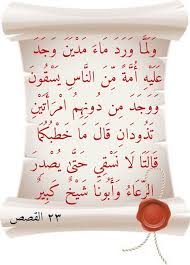 وَلَمَّا وَرَدَ مَاءَ مَدْيَنَ وَجَدَ
عَلَيْهِ أُمَّةً مِّنَ النَّاسِ يَسْقُونَ
وَوَجَدَ مِن دُونِهِمُ امْرَأَتَيْنِ
تَذُودَانِ قَالَ مَا خَطْبُكُمَا
قَالَتَا لَا نَسْقِي حَتَّى يُصْدِرَ
الرِّعَاءُ وَأَبُونَا شَيْخٌ كَبِيرٌ
٢٣ القصص